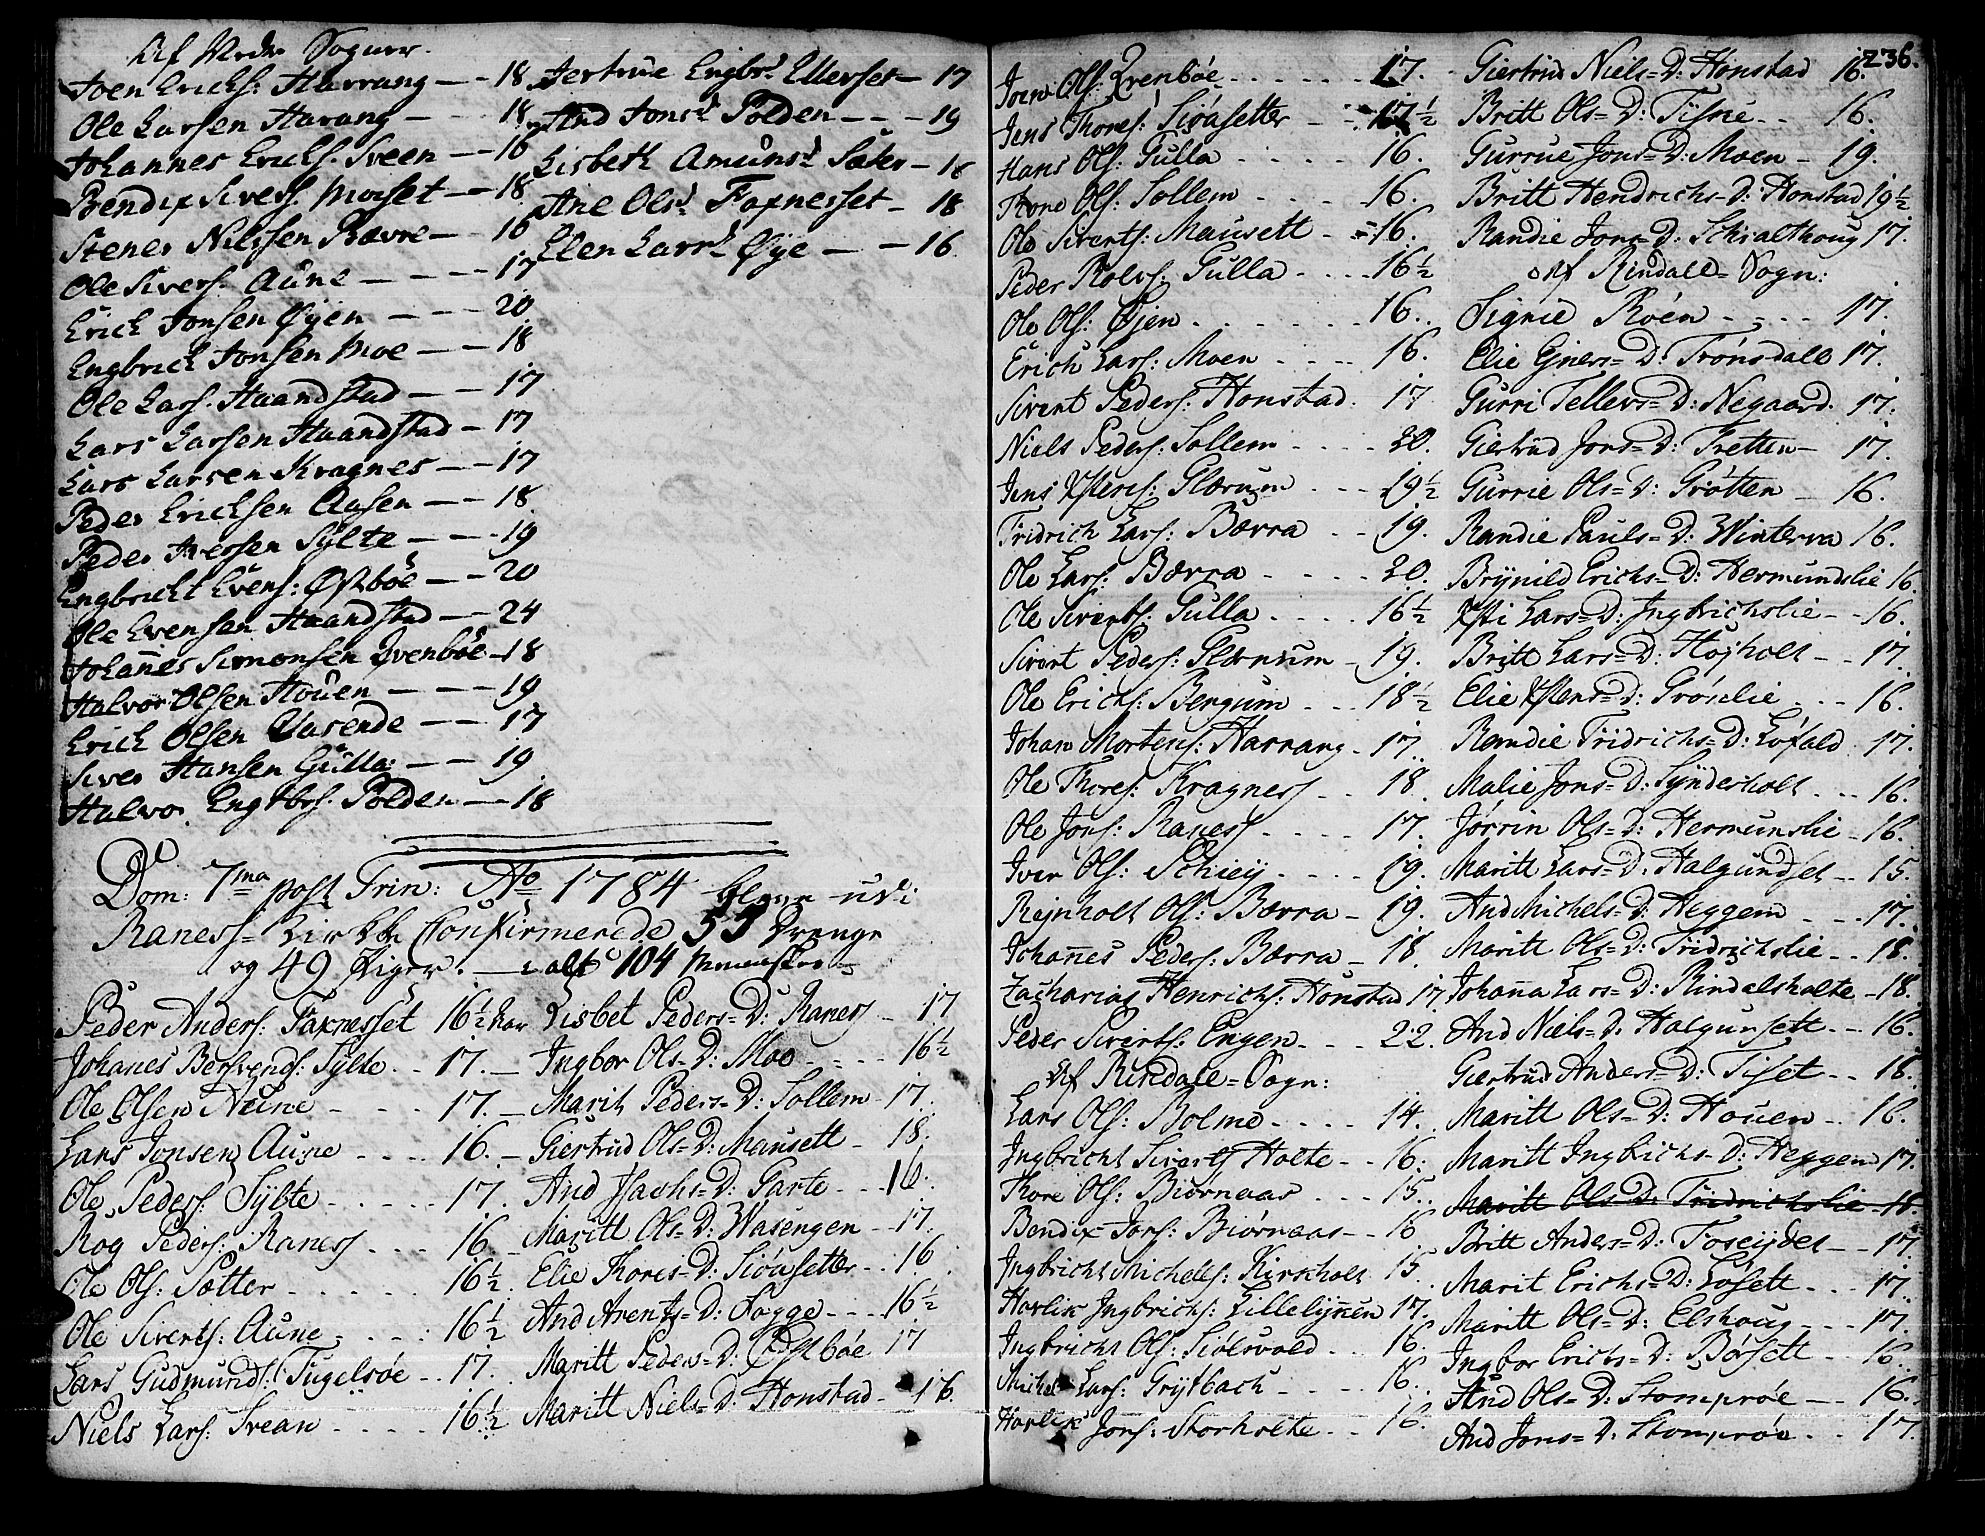 Af Nedre Sogner.
Joen Erichs: Harrang — - 18
Ole Larsen Harang — - - 18
Johannes Erichs. Sveen — - 16
Bendix Sivers. Morset — - 18
Stener Nilssen Bævre — - 16
Ole Sivers. Aune — - - - 17
Erich Jonsen Øyen — - - - 20
Engbrich Jonsen Moe — - - 18
Ole Lars. Haandstad — - - 17
Lars Larsen Haandstad - 17
Lars Larsen Kragnes — - 17
Peder Ericksen Aasen — - 18
Peder Iversen Sylte — - - 19
Engbricht Evens: Østbøe — - 20
Ole Evensen Haandstad — - 24
Johañes Simonsen Qvenbøe - 18
Halvor Olsen Houen — - - - 19
Erich Olsen Aasende — - - 17
Siver Hansen Gulla — - - 19
Halvor Engebrs. Polden — - 18
Jertrue Engbrd Ellevset - 17
And Jonsd Polden — - - 19
Lisbeth Amunsd Sæter - 18
Ane Olsd Faxnesset - 18
Elen Larsd Øye — - - 16
Dom: 7ma post Trin: Ao 1784 blev udi
Raness- Kirke Confirmerede 55 Drenge
og 49 Piger. — i alt 104 Mennisker
Peder Anders: Faxnesset 16½ Aar
Johanes Bersvends: Sylte . . 17. -
Ole Olsen Aune - - - - 17. -
Lars Jonsen Aune - - - - 16. -
Ole Peders: Sylte - - - - - 17.
Rog Peders: Raness - - - 16
Ole Ols: Sætter - - - - - - 16½.
Ole Siverts: Aune - - - - 16½
Lars Gudmunds: Fugelsøe - . 17.
Niels Lars: Svean - - - - 16½
Lisbet Peders=D: Raness - 17
Ingbor Ols=D: Moe - - - - 16½
Marit Peders=D: Sollem - 17.
Giertrud Ols=D: Mausett - 18.
And Isachs=D: Garte - - - 16.
Maritt Ols=D: Wasengen - - 17.
Elie Thores=D: Siøasetter - - 16
And Arents=D: Fogge - - - 16½
Maritt Peders=D: Østbøe 17
Maritt Niels=D: Honstad - 16.
236.
Joen Ols: Qvenbøe - - - - - - 17.
Jens Thores: Siøasetter - - 17½
Hans Ols: Gulla - - - - - 16.
Thore Ols: Sollem - - - - 16.
Ole Siverts: Mausett - - 16.
Peder Rolvs: Gulla - - - - 16½
Ole Ols: Øjen - - - - - - - 16.
Erich Lars: Moen - - - - 16.
Sivert Peders: Honstad . 17
Niels Peders: Sollem - - - - 20.
Jens Ystens: Glærum - - - 19½
Fridrich Lars: Bævra - - 19.
Ole Lars: Bævra - - - - - 20.
Ole Siverts: Gulla - - - - 16½
Sivert Peders: Glærum - 19.
Ole Erichs: Bergum - - - 18½
Johan Mortens: Harrang - 17.
Ole Thores: Kragness - - 18.
Ole Jons: Raness - - - - 17.
Iver Ols: Schiey - - - - 19.
Rejnholt Ols: Bævra - 19.
Johañes Peders: Bævra - 18.
Zacharias Henrichs: Honstad 17.
Peder Siverts: Engen - - - 22.
Af Rindals=Sogn:
Lars Ols: Bolme - - - - 14.
Ingbricht Siverts: Holte - - 16.
Thore Ols: Biørnaas - - - 15.
Bendix Jons: Biørnaas - - 16
Ingbricht Michels: Kirscholt 15.
Havlik Ingbrichs: Lillelijnun 17.
Ingbricht Ols: Siølsvold - - 16.
Michel Lars: Grytbach - - - - 16.
Havlik Jons: Storholte - - 16.
Giertrud Niels=D: Honstad 16.
Britt Ols=D: Tisne - - 16.
Gurrue Jons=D: Moen - 19.
Britt Hendrichs=D: Honstad 19½
Randie Jons=D: Schialthoug 17.
Af Rindals=Sogn:
Signie Røen - - - - 17.
Elie Ejners=D: Trønsdall 17.
Gurri Tellevs=D: Negaard. 17.
Giertrud Jons=D: Tretten - 17.
Gurrie Ols=D: Grøtten - 16.
Randie Pauls=D: Winterva 16.
Brynild Erichs=D: Hermundslie 16.
Ysti Lars=D: Ingbrichslie - - 16.
Britt Lars=D: Højholt - - 17.
Elie Ystens=D: Grøselie - - - 16.
Randie Fridrichs=D: Løfald . 17.
Malie Jons=D: Synderholt - - - 16.
Jørrin Ols=D: Hermunslie - 16.
Maritt Lars=D: Halgundset - - 15.
And Michels=D: Heggem - - - 17.
Maritt Ols=D: Fridrichslie - - 18.
Johaña Lars=D: Rindalsholte - 18.
And Niels=D: Halgunsett - - 16.
Giertrud Anders=D: Tiset - - 18.
Maritt Ols=D: Houen - - 16.
Maritt Ingbrichs=D: Heggem 17.
Maritt Ols=D: Fridrichslie - 18.
Britt Anders=D: Foseijdet - - 17.
Marit Erichs=D: Løsett - - - 17.
Maritt Ols=D: Elshoug - - - 17.
Ingbor Erichs=D: Børsett - - 16.
And Ols=D: Stomprøe — - 16.
And Jons=D: Stomprøe - - 17.